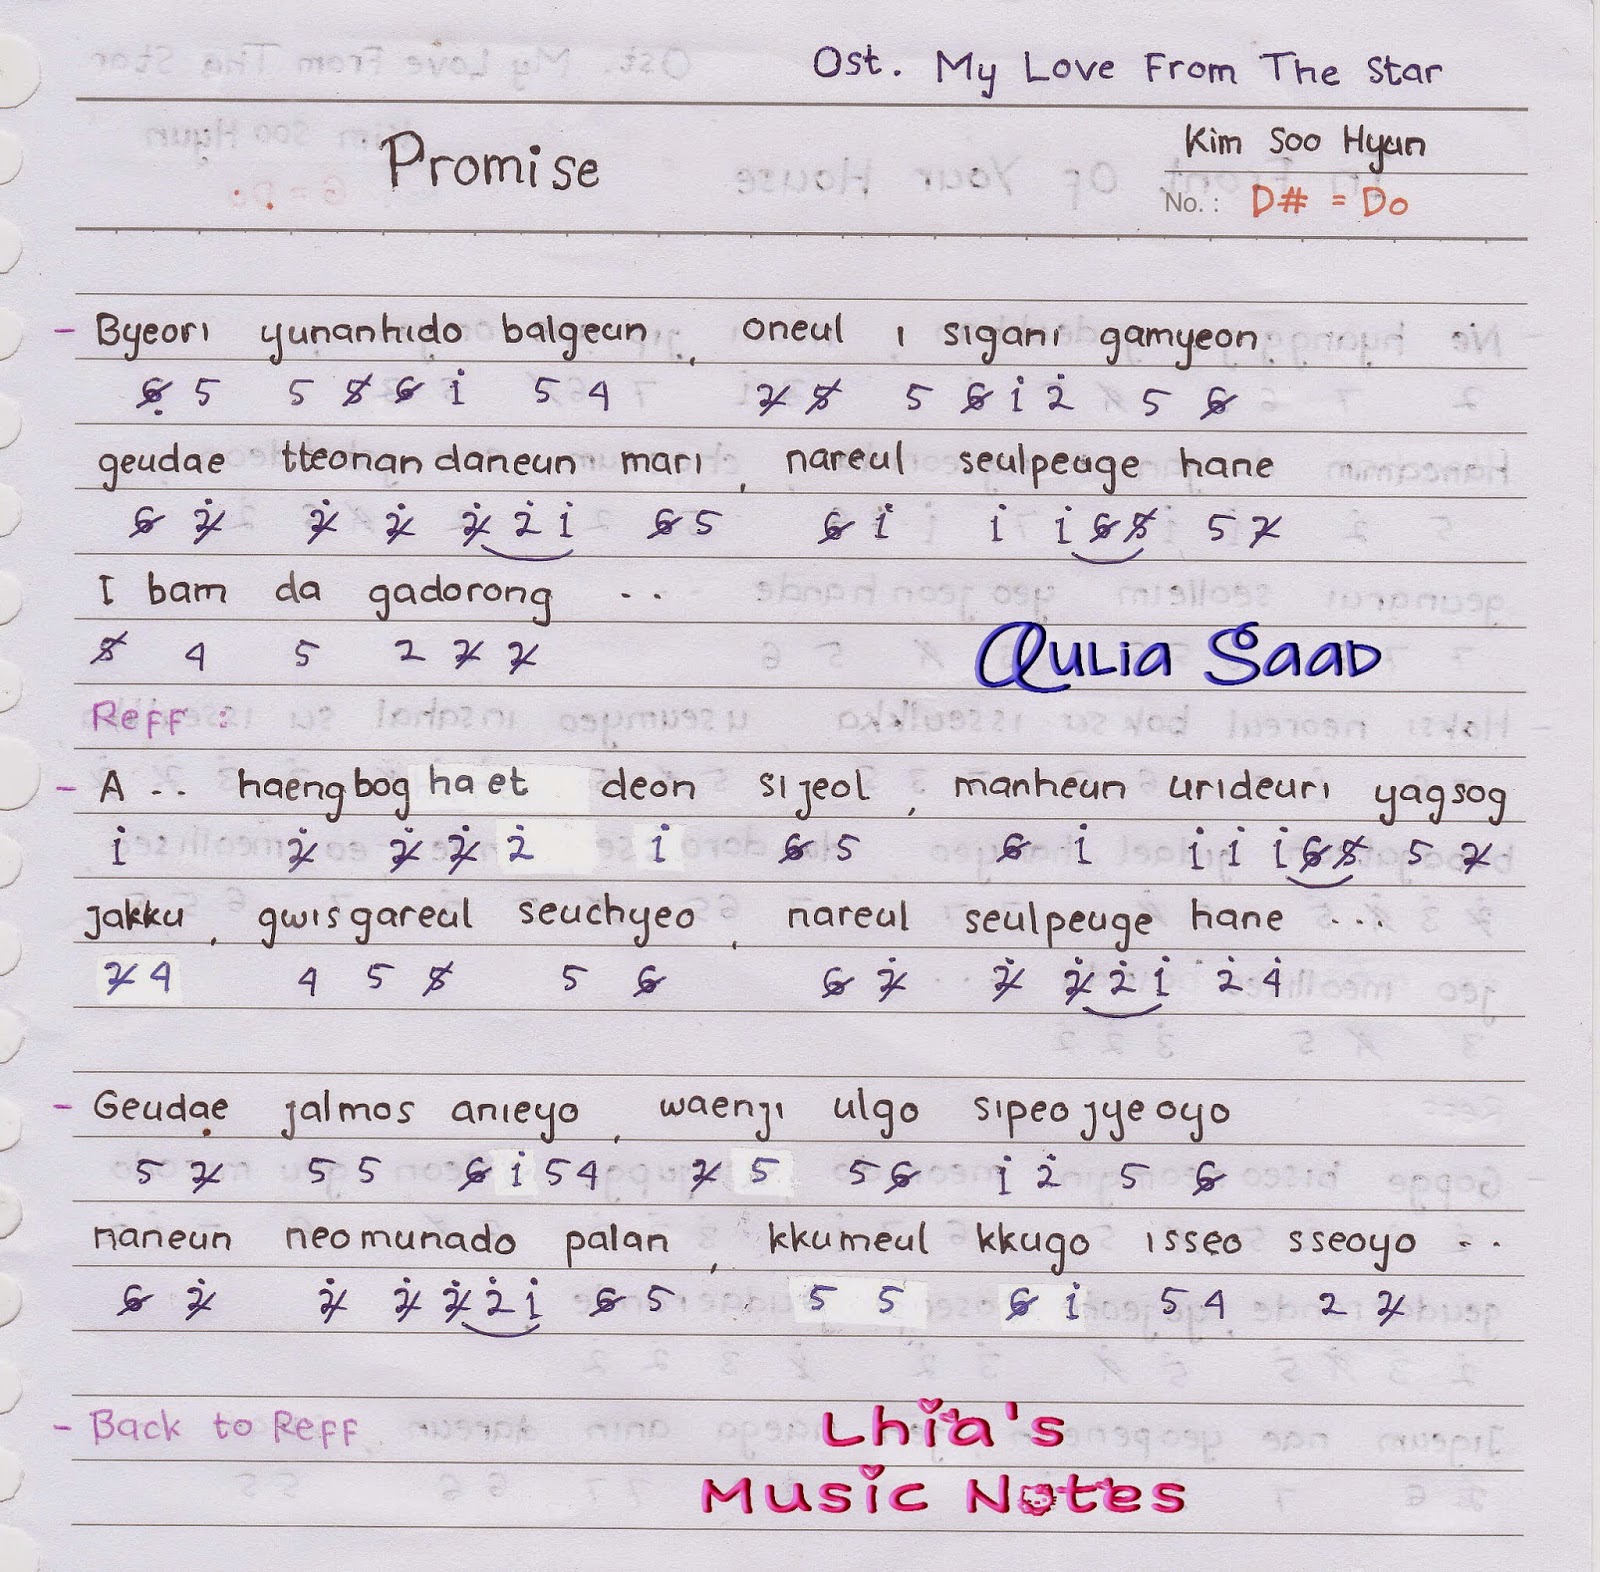 Ost. My Love From The Star
Promise
Kim Soo Hyun
No. : D# = Do
- Byeori yunanhido balgeun, oneul i sigani gamyeon
6̸̣ 5 5 5̸ 6̸ i̇ 5 4 2̸ 5̸ 5 6̸ i̇ 2̇ 5 6̸
geudae tteonan daneun mari, nareul seulpeuge hane
6̸ 2̸̇ 2̸̇ 2̸̇ 2̸̇ 2̇ i̇ 6̸ 5 6̸ i̇ i̇ i̇ 6̸ 5̸ 5 2̸
I bam da gadorong ..
5̸ 4 5 2 2̸ 2̸
Aulia Saad
Reff :
- A .. haengbog haet deon sijeol, manheun urideuri yagsog
i̇ 2̸̇ 2̸̇ 2̸̇ 2̇ i̇ 6̸ 5 6̸ i̇ i̇ i̇ i̇ 6̸ 5̸ 5 2̸
jakku, gwisgareul seuchyeo, nareul seulpeuge hane ...
2̸ 4 4 5 5̸ 5 6̸ 6̸ 2̸̇ 2̸̇ 2̸̇ 2̇ i̇ 2̇ 4̇
- Geudae jalmos anieyo, waenji ulgo sipeojyeoyo
5 2̸ 5 5 6̸ i̇ 5 4 2̸ 5 5 6̸ i̇ 2̇ 5 6̸
naneun neomunado palan, kkumeul kkugo isseo sseoyo ..
6̸ 2̸̇ 2̸̇ 2̸̇ 2̸̇ 2̇ i̇ 6̸ 5 5 5 6̸ i̇ 5 4 2 2̸
- Back to Reff
Lhia's
Music Notes